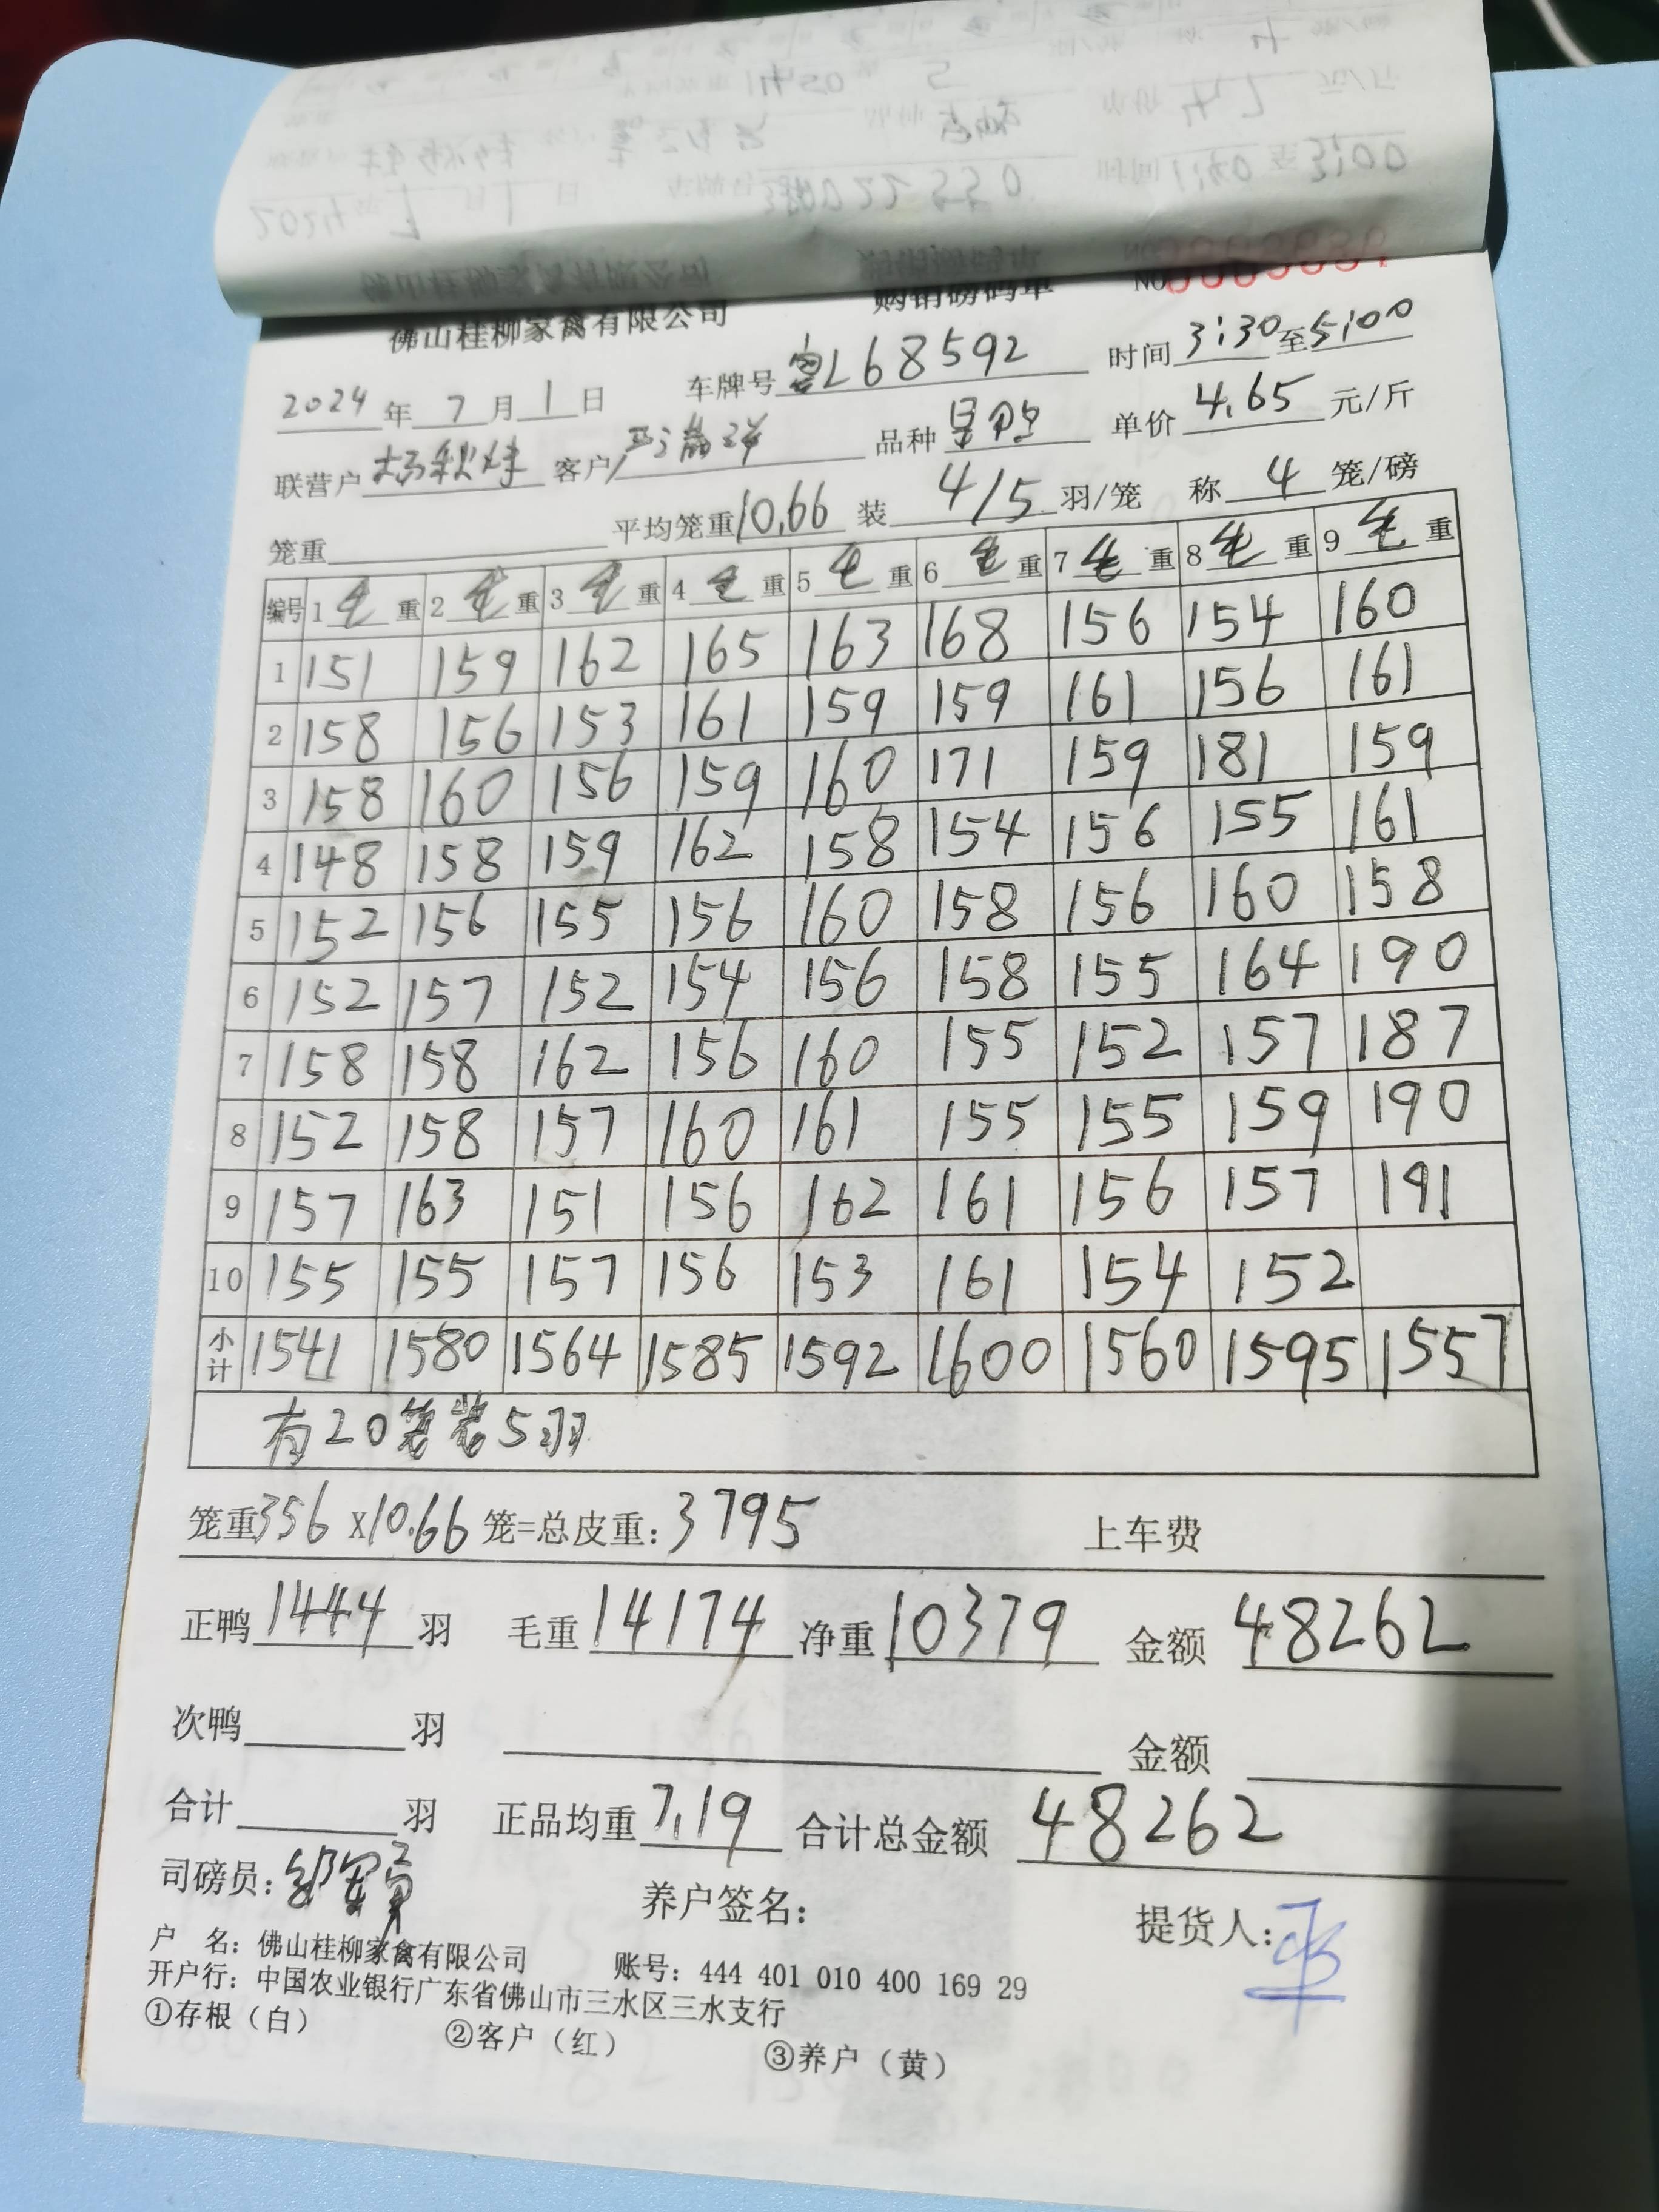 佛山桂柳家禽有限公司 购销磅码单 NO
2024年7月1日 车牌号 L68592 时间3:30至5:00
联营户 客户 品种 单价4.65元/斤
笼重 平均笼重10.66 装4/5羽/笼 称4笼/磅
编号 1毛重 2毛重 3毛重 4毛重 5毛重 6毛重 7毛重 8毛重 9毛重
1 151 159 162 165 163 168 156 154 160
2 158 156 153 161 159 159 161 156 161
3 158 160 156 159 160 171 159 181 159
4 148 158 159 162 158 154 156 155 161
5 152 156 155 156 160 158 156 160 158
6 152 157 152 154 156 158 155 164 190
7 158 158 162 156 160 155 152 157 187
8 152 158 157 160 161 155 155 159 190
9 157 163 151 156 162 161 156 157 191
10 155 155 157 156 153 161 154 152
小计 1541 1580 1564 1585 1592 1600 1560 1595 1557
有20笼装5羽
笼重356x10.66笼=总皮重:3795 上车费
正鸭1444羽 毛重14174 净重10379 金额48262
次鸭 羽 金额
合计 羽 正品均重7.19 合计总金额48262
司磅员: 养户签名: 提货人:
户 名:佛山桂柳家禽有限公司 账号:444 401 010 400 169 29
开户行:中国农业银行广东省佛山市三水区三水支行
①存根（白） ②客户（红） ③养户（黄）